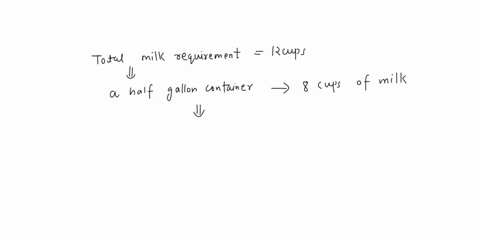 Total milk requirement = 12cups
⇓
a half gallon container → 8 cups of milk
⇓